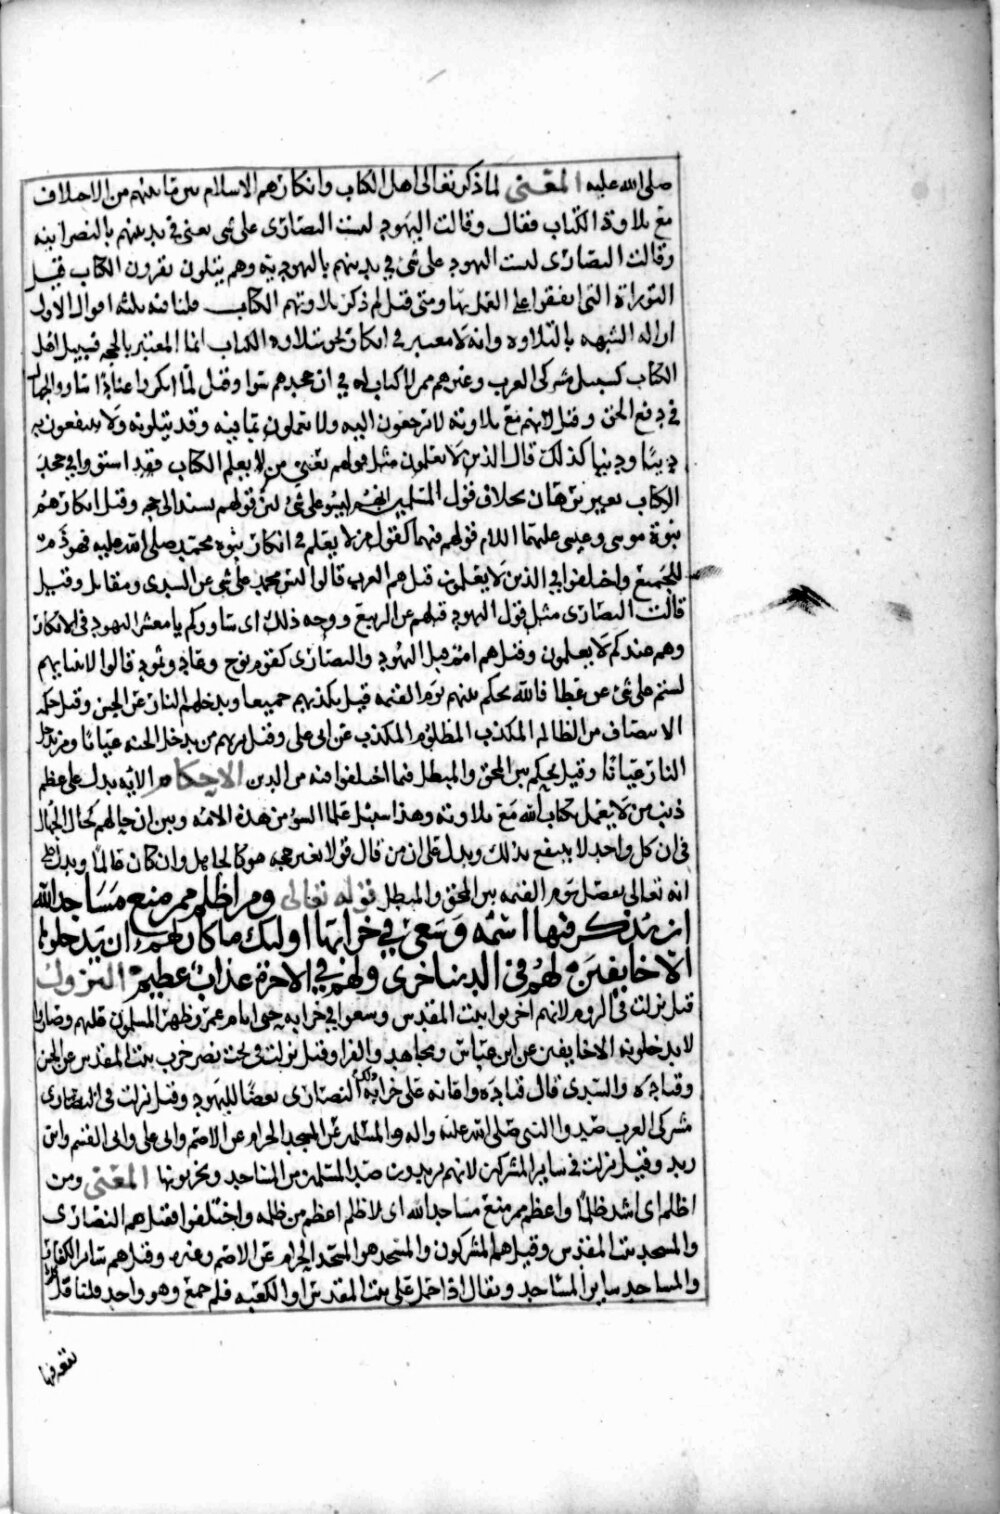 صلى الله عليه المعنى لما ذكر تعالى اهل الكتاب وانكارهم الاسلام بين ما بينهم من الاختلاف
مع تلاوة الكتاب فقال وقالت اليهود ليست النصارى على شى يعنى في تدينهم بالنصرانية
وقالت النصارى ليست اليهود على شئ في تدينهم باليهودية وهم يتلون يقرون الكتاب قيل
التوراة التى اتفقوا على العمل بها ومتى قيل لم ذكر تلاوتهم الكتاب قلنا فيه ثلثه اقوال الاول
ازاله الشبهه بالتلاوه وانه لا معتبر في انكار من تلاوه الكتاب انما المعتبر بالحجه فسبيل اهل
الكتاب كسبيل مشركى العرب وغيرهم ممن لا كتاب له في ان جحدهم سوا وقيل لما انكروا عنادا ساووا الجهال
في دفع الحق وقيل لانهم مع تلاوته لا يرجعون اليه ولا يعملون بما فيه وقد يتلونه ولا ينتفعون به
دينا ودنيا كذلك قال الذين لا يعلمون مثل قولهم يعني من لا يعلم الكتاب فقد استووا في جحد
الكتاب بغير برهان بخلاف قول المسلمين انهم ليسوا على شئ لان قولهم يستند الى حجه وقيل انكارهم
نبوة موسى وعيسى عليهما السلام قولهم فيهما كقول من لا يعلم في انكار نبوه محمد صلى الله عليه فهو ذم
للجميع واختلفوا في الذين لا يعلمون قيل هم العرب قالوا ليس محمد على شى عن السدى ومقاتل وقيل
قالت النصارى مثل قول اليهود قبلهم عن الربيع ووجه ذلك اى ساووكم يا معشر اليهود في الانكار
وهم عندكم لا يعلمون وقيل هم امم قبل اليهود والنصارى كقوم نوح وعاد وثمود قالوا لانبيايهم
لستم على شئ عن عطا فالله يحكم بينهم يوم القيمه قيل يكذبهم جميعا ويدخلهم النار عن الحسن وقيل حكمه
الانتصاف من الظالم المكذب المظلوم المكذب عن ابى على وقيل يريهم من يدخل الجنه عيانا ومن يدخل
النار عيانا وقيل يحكم بين المحق والمبطل فيما اختلفوا فيه من الدين الاحكام الايه يدل على عظم
ذنب من لا يعمل بكتاب الله مع تلاوته وهذا سبيل علما السؤ من هذه الامه وبين ان حالهم كحال الجهال
في ان كل واحد لا ينتفع بذلك ويدل على ان من قال قولا بغير حجه هو كالجاهل وان كان عالما ويدل على
انه تعالى يفصل يوم القيمه بين المحق والمبطل قوله تعالى ومن اظلم ممن منع مساجد الله
ان يذكر فيها اسمه وسعى في خرابها اوليك ما كان لهم ان يدخلوها
الا خايفين لهم في الدنيا خزى ولهم في الاخرة عذاب عظيم النزول
قيل نزلت في الروم لانهم اخربوا بيت المقدس وسعوا في خرابه حتى ايام عمر وظهر المسلمون عليهم وصاروا
لا يدخلونه الا خايفين عن ابن عباس ومجاهد والفرا وقيل نزلت في بخت نصر خرب بيت المقدس عن الحسن
وقتاده والسدى قال قتاده واعانه على خرابه النصارى بغضا لليهود وقيل نزلت في
مشركى العرب صدوا النبى صلى الله عليه واله والمسلمين عن المسجد الحرام عن الاصم وابى على وابى القسم وابن
زيد وقيل نزلت في ساير المشركين لانهم يريدون صد المسلمين من المساجد وتخريبها المعنى ومن
اظلم اى اشد ظلما واعظم ممن منع مساجد الله اى لا ظلم اعظم من ظلمه واختلفوا فقيل هم النصارى
والمسجد بيت المقدس وقيل هم المشركون والمسجد هو المسجد الحرام عن الاصم وغيره وقيل هم ساير الكفار
والمساجد ساير المساجد ويقال اذا حمل على بيت المقدس او الكعبه فلم جمع وهو واحد قلنا